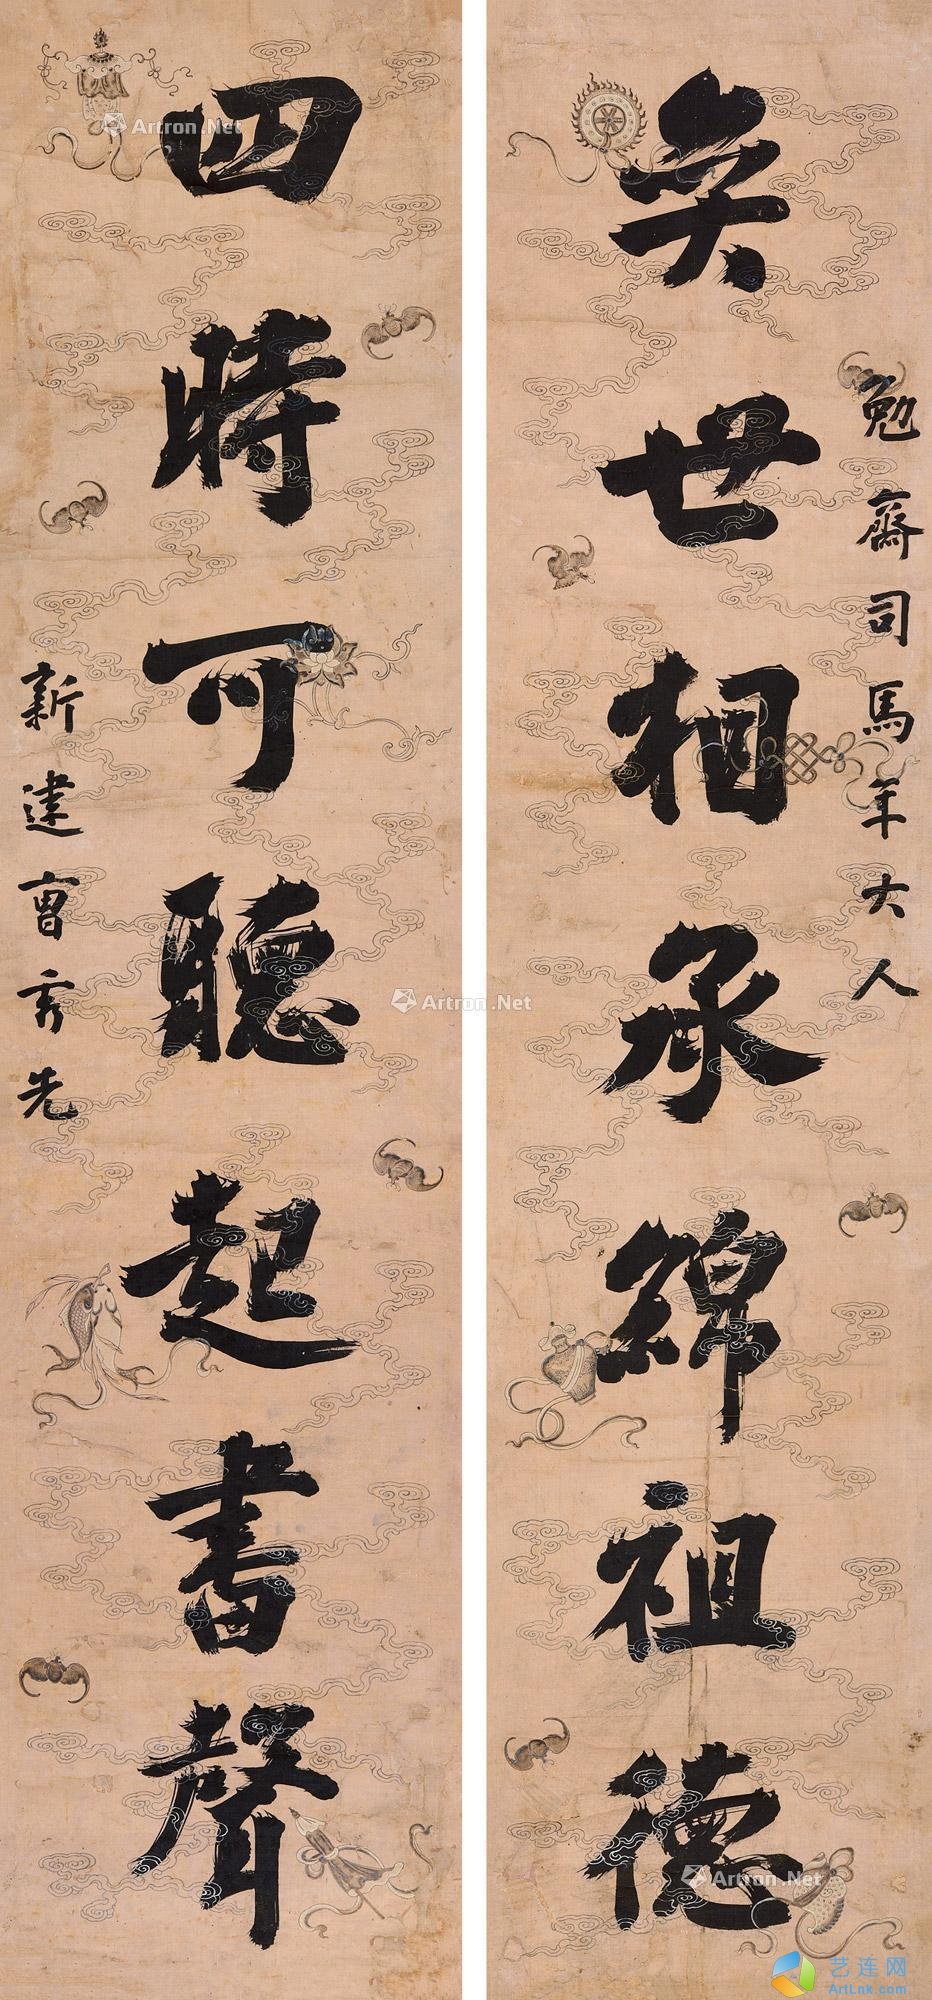 奕世相承綿祖德
勉齋司馬年大人
四時可聽起書聲
新建曹秀先
Artron.Net
Artron.Net
Artron.Net
艺连网
ArtLnk.com